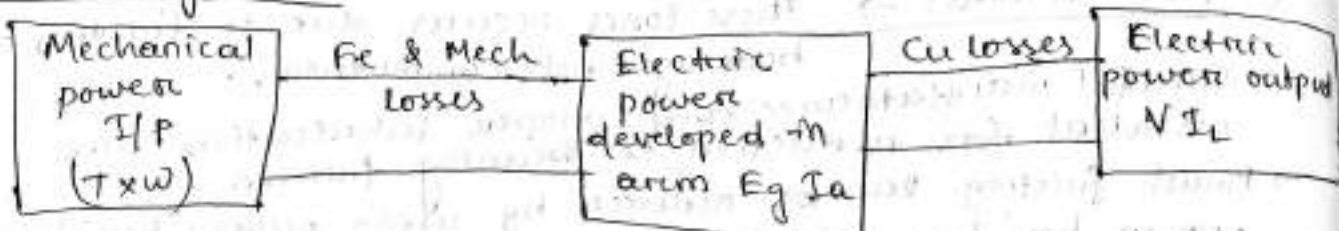 Mechanical
power
I/P
(T×W)
Fe & Mech
Losses
Electric
power
developed in
arm Eg Ia
Cu Losses
Electric
power output
V IL